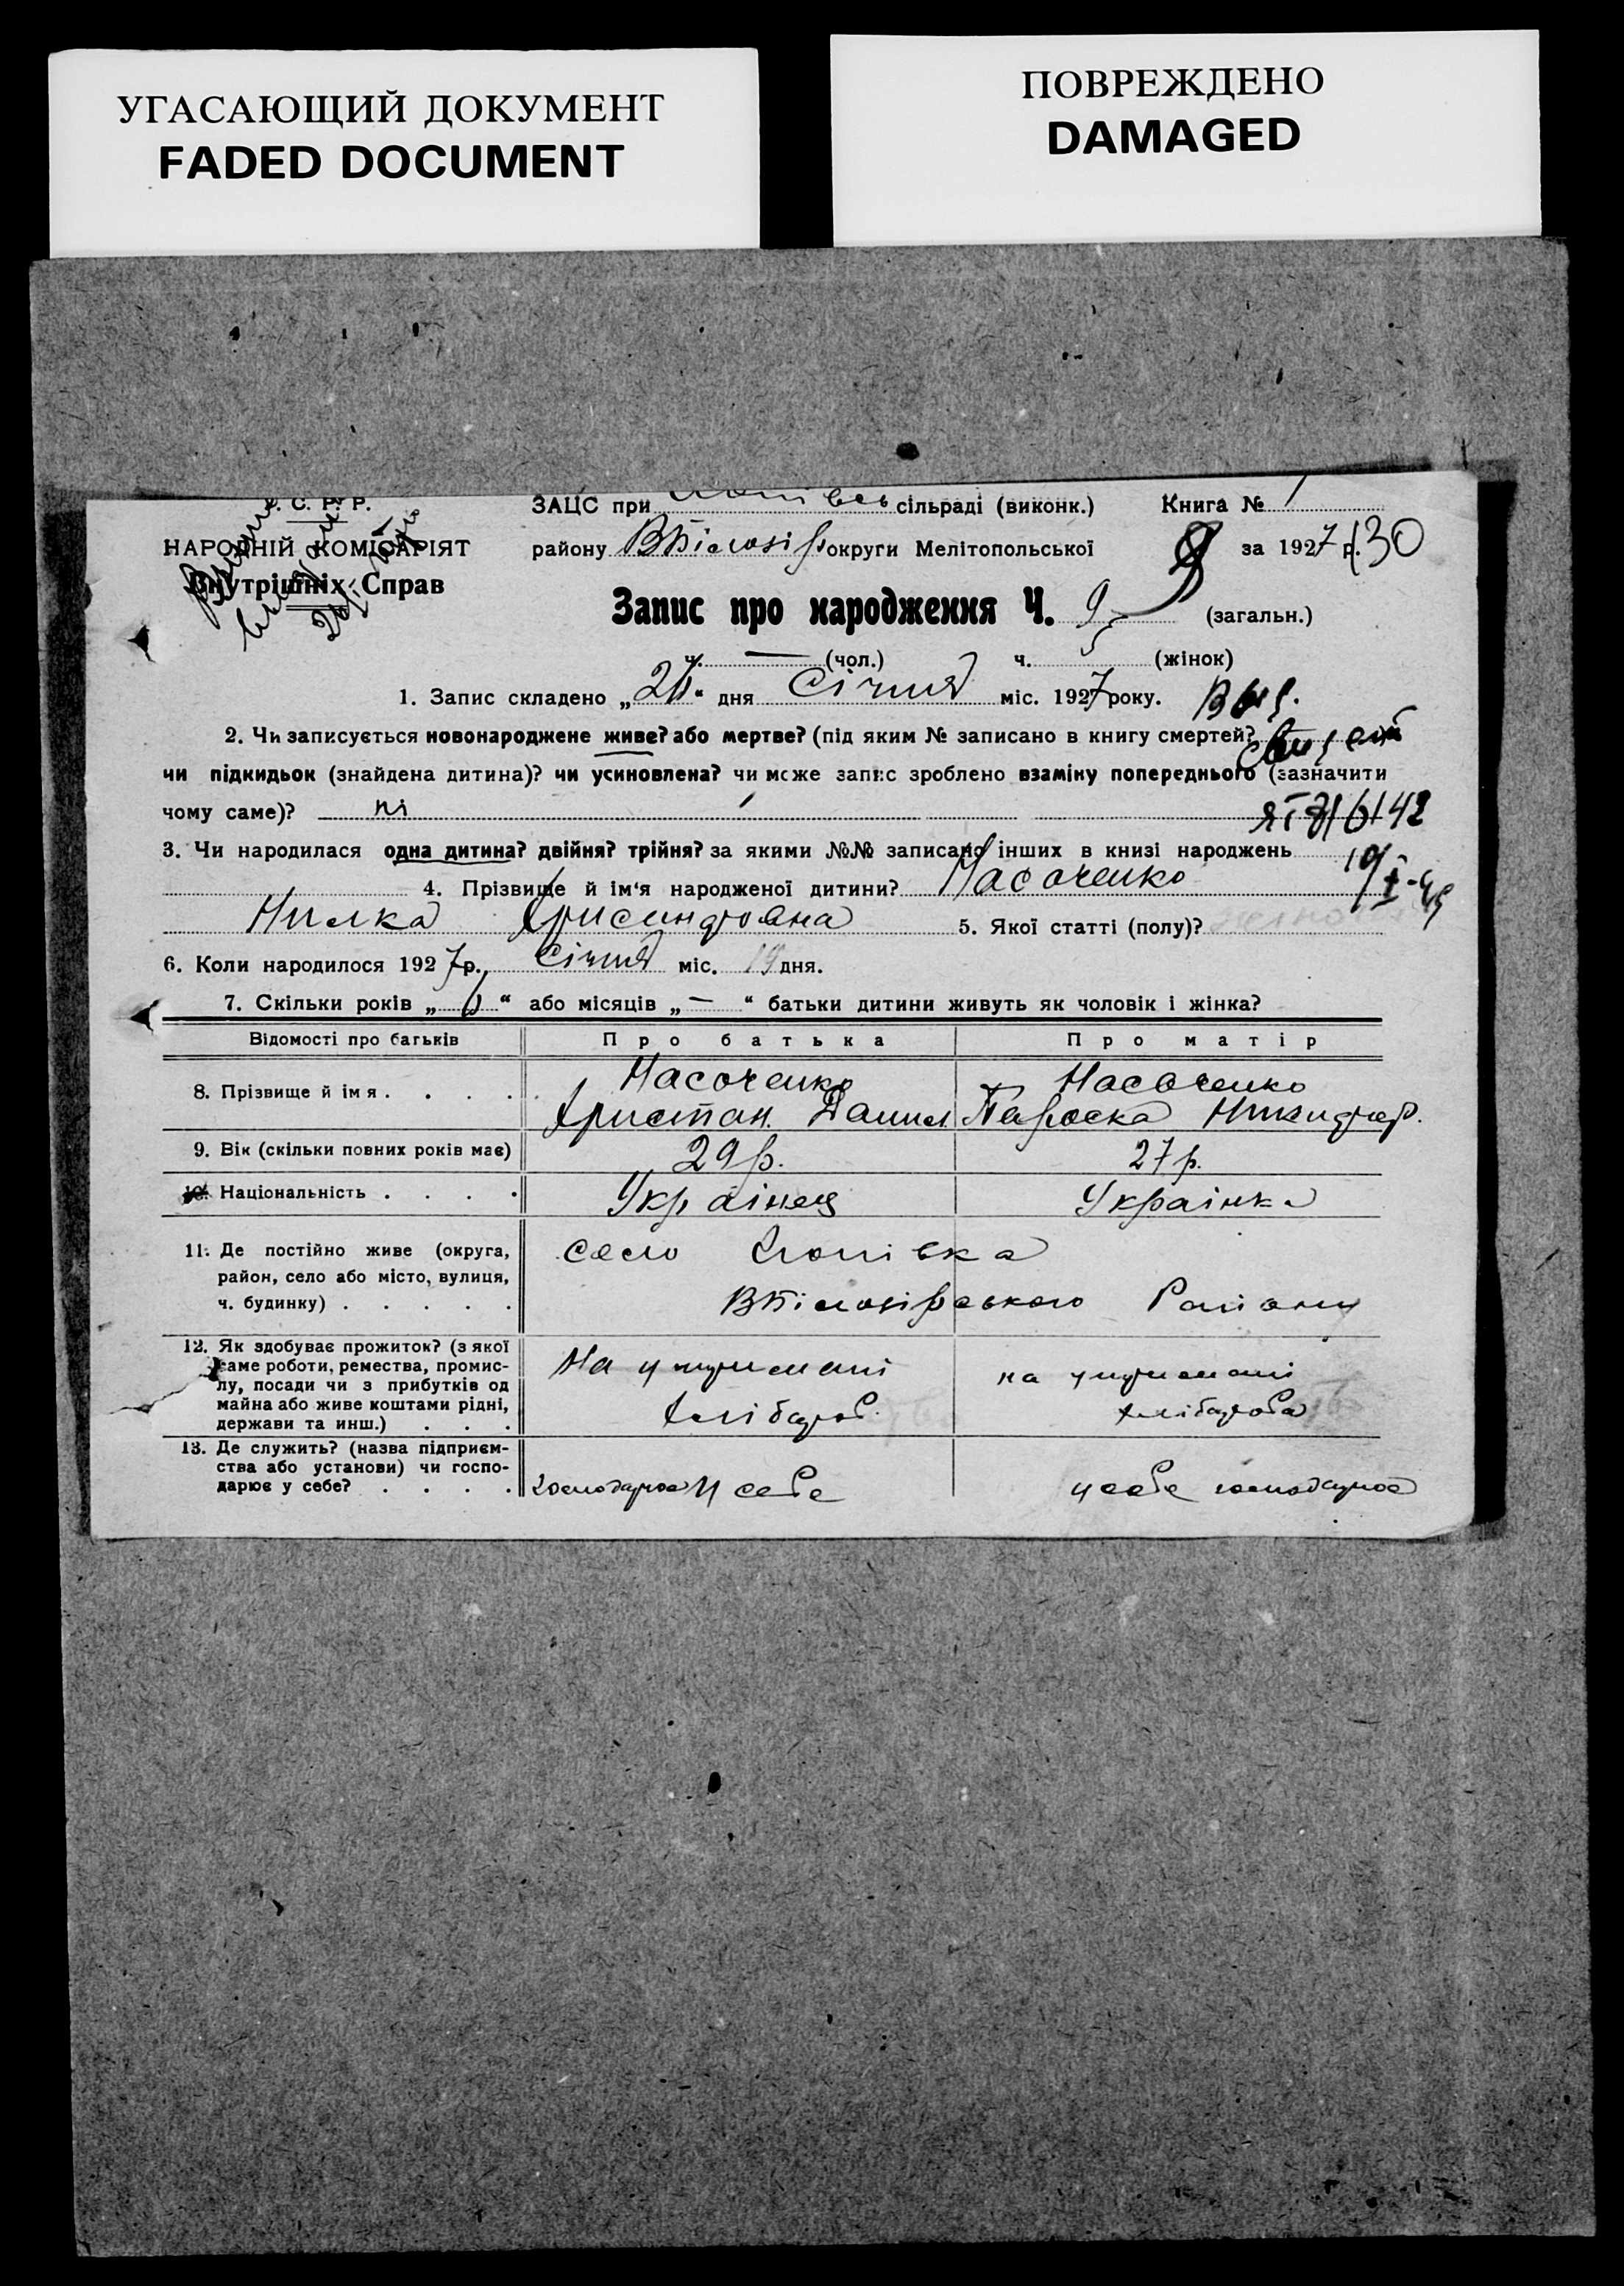 УГАСАЮЩИЙ ДОКУМЕНТ
FADED DOCUMENT
ПОВРЕЖДЕНО
DAMAGED
С. Р. Р.
НАРОДНІЙ КОМІСАРІЯТ
Внутрішніх Справ
ЗАЦС при сільраді (виконк.) Книга № 1
району ВБілозір округи Мелітопольської за 1927 р. 130
Запис про народження Ч. 9 (загальн.)
ч. — (чол.) ч. 5 (жінок)
1. Запис складено „ “ дня Січня міс. 1927 року.
2. Чи записується новонароджене живе? або мертве? (під яким № записано в книгу смертей?
чи підкидьок (знайдена дитина)? чи усиновлена? чи може запис зроблено взаміну попереднього (зазначити
чому саме)? ні
3. Чи народилася одна дитина? двійня? трійня? за якими №№ записано інших в книзі народжень
4. Прізвище й ім'я народженої дитини? Насоченко
5. Якої статті (полу)?
6. Коли народилося 1927 р. Січня міс. 19 дня.
7. Скільки років „ “ або місяців „ — “ батьки дитини живуть як чоловік і жінка?
Відомості про батьків Про батька Про матір
8. Прізвище й ім я . . . . . Насоченко Насоченко
9. Вік (скільки повних років має) 29 р. 27 р.
10. Національність . . . . Українец Українка
11. Де постійно живе (округа,
район, село або місто, вулиця,
ч. будинку) . . . . .
село
ВБілозірського Району
12. Як здобуває прожиток? (з якої
саме роботи, ремества, промис-
лу, посади чи з прибутків од
майна або живе коштами рідні,
держави та инш.) . . .
На утримані
на утримані
13. Де служить? (назва підприєм-
ства або установи) чи госпо-
дарює у себе? . . . .
господарює У себе
у себе господарює